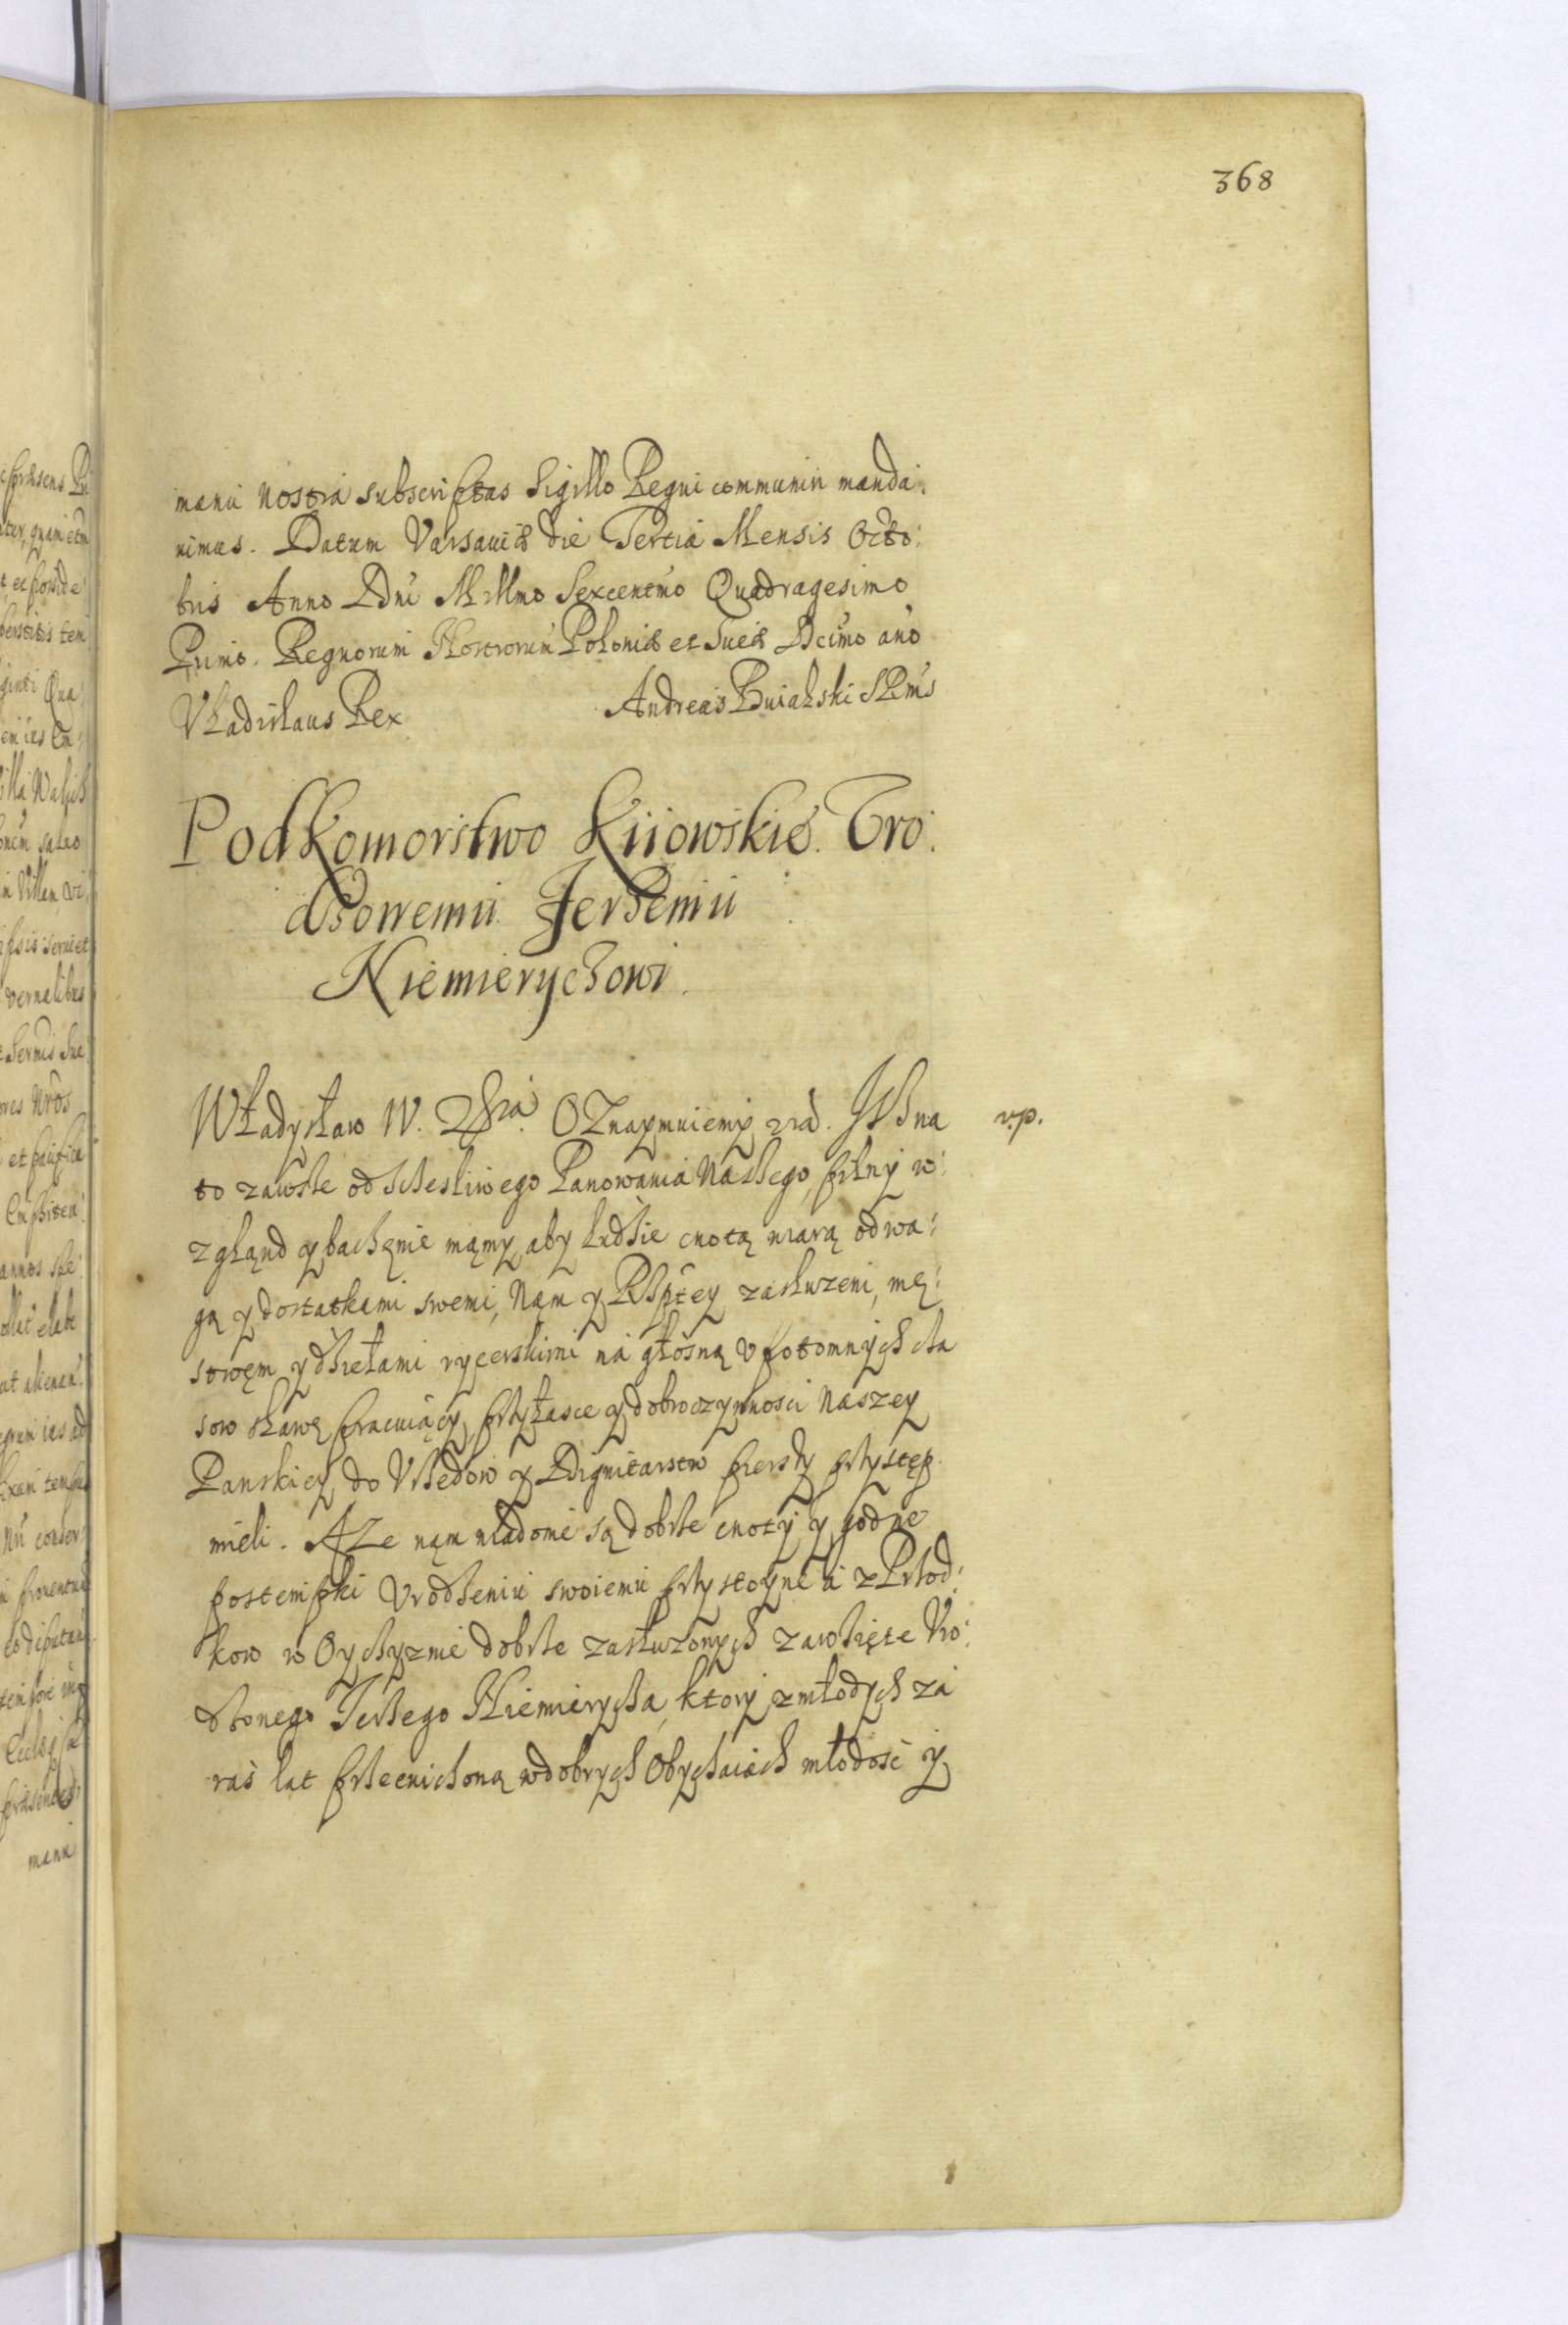 368
manu nostra subscriptas Sigillo Regni communiri manda:
uimus. Datum Varsauiæ die Tertia Mensis Octo:
bris Anno Dni Millmo Sexcentmo Quadragesimo
Primo. Regnorum Nostrorum Poloniæ et Sueciæ Dcimo ano
Vladislaus Rex Andreas Smus
Podkomorstwo Kiiowskie. Vro:
dzonemu Jerzemu
Niemierychowi.
Władysław IV. Oznaymuiemy na
to zawsze od sczesliwego Panowania Naszego, pilny w:
zgląnd y baczęnie mąmy, aby ludzie cnotą wiarą odwa:
gą y dostatkami swemi, Nąm y Rzptey zasłuzeni, mę:
stwęm y dziełami rycerskimi na głosną v potomnych cza
sow sławę pracuiący, przy łasce y dobroczynnosci Naszey
Panskiey, do Vrzedow y Dignitarstw pierszy przystęp
mieli. A Ze nąm wiadome są dobrze cnoty y godne
postempki Vrodzeniu swoiemu przystoyne a z Przod:
kow w Oyczyznie dobrze zasłuzonych zawzięte Vro:
dzonego Jerzego Niemierycza, ktory z młodych za
raz lat przecwiczoną w dobrych Obyczaiach młodosc y
v.p.